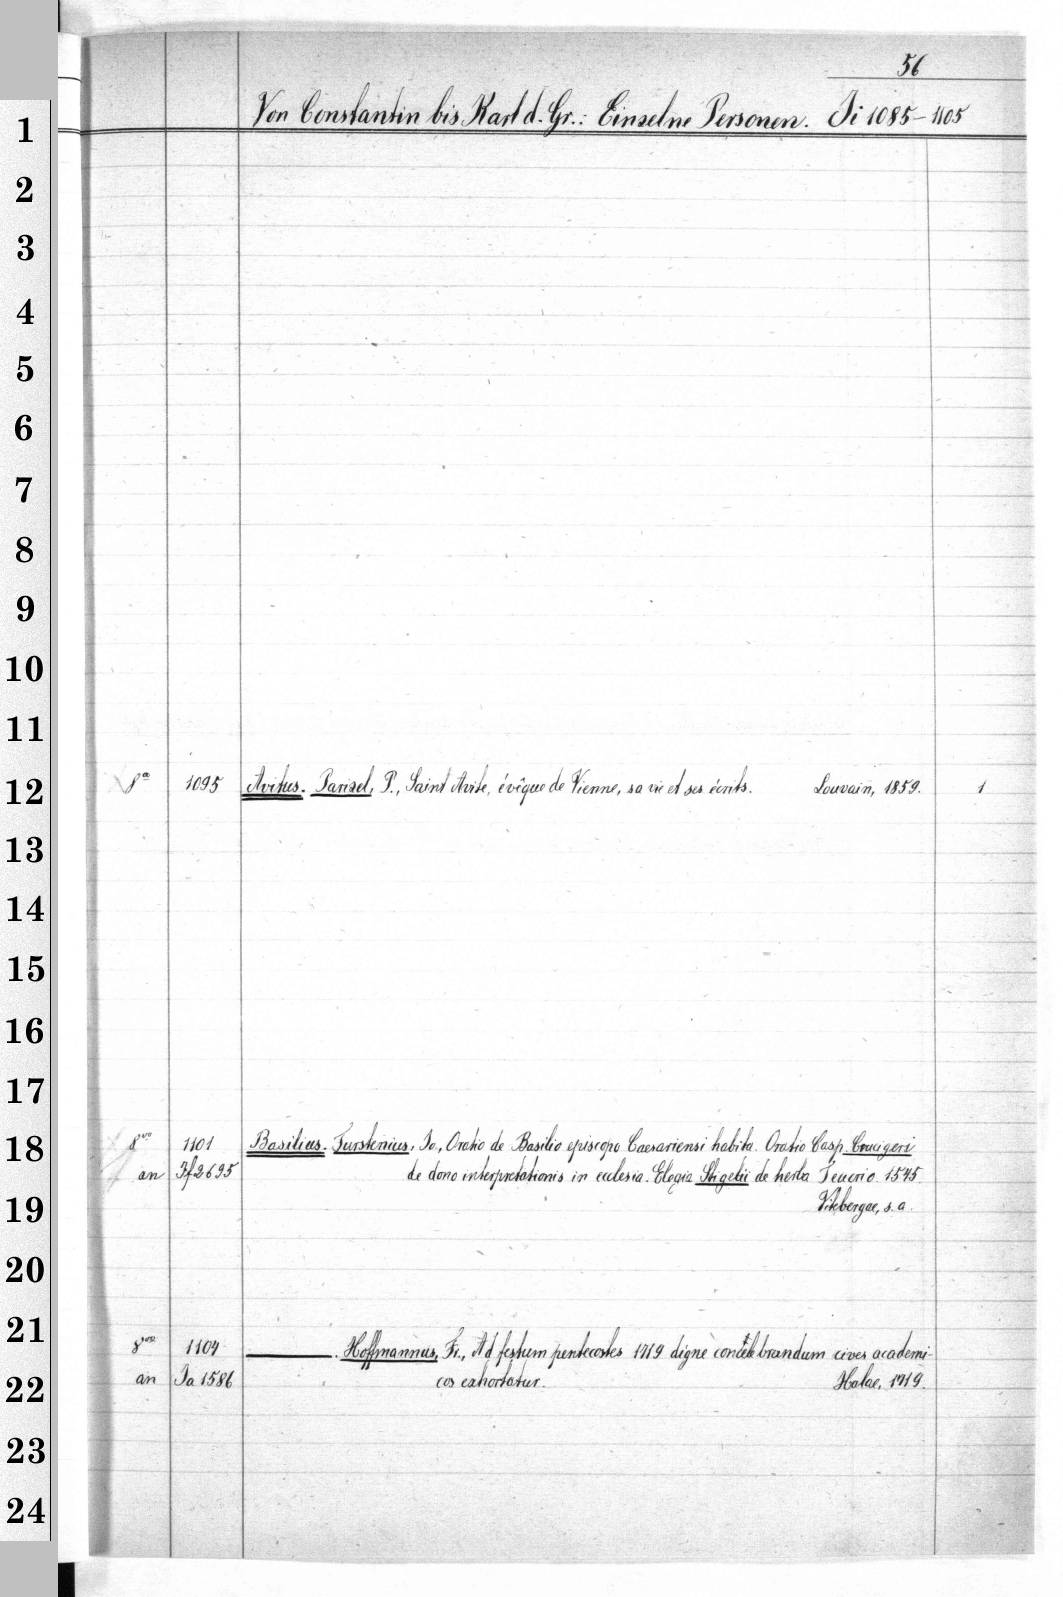 56
Von Constantin bis Karl d. Gr.: Einzelne Personen. Ji 1085–1105
1
2
3
4
5
6
7
8
9
10
11
12
8º 1095 Avitus. Parizel, P., Saint Avite, évêque de Vienne, sa vie et ses écrits. Louvain, 1859. 1
13
14
15
16
17
18
8vo 1101 Basilius. Furstenius, Jo., Oratio de Basilio episcopo Caesariensi habita. Oratio Casp. Crucigeri
an If 2695 de dono interpretationis in ecclesia. Elegia Stigelii de herba Teucrio. 1545.
19
Vitebergae, s. a.
20
21
8vo 1104 ———. Hoffmannus, Fr., Ad festum pentecostes 1719 digne concelebrandum cives academi-
22
an Ja 1586 cos exhortatur. Halae, 1719.
23
24